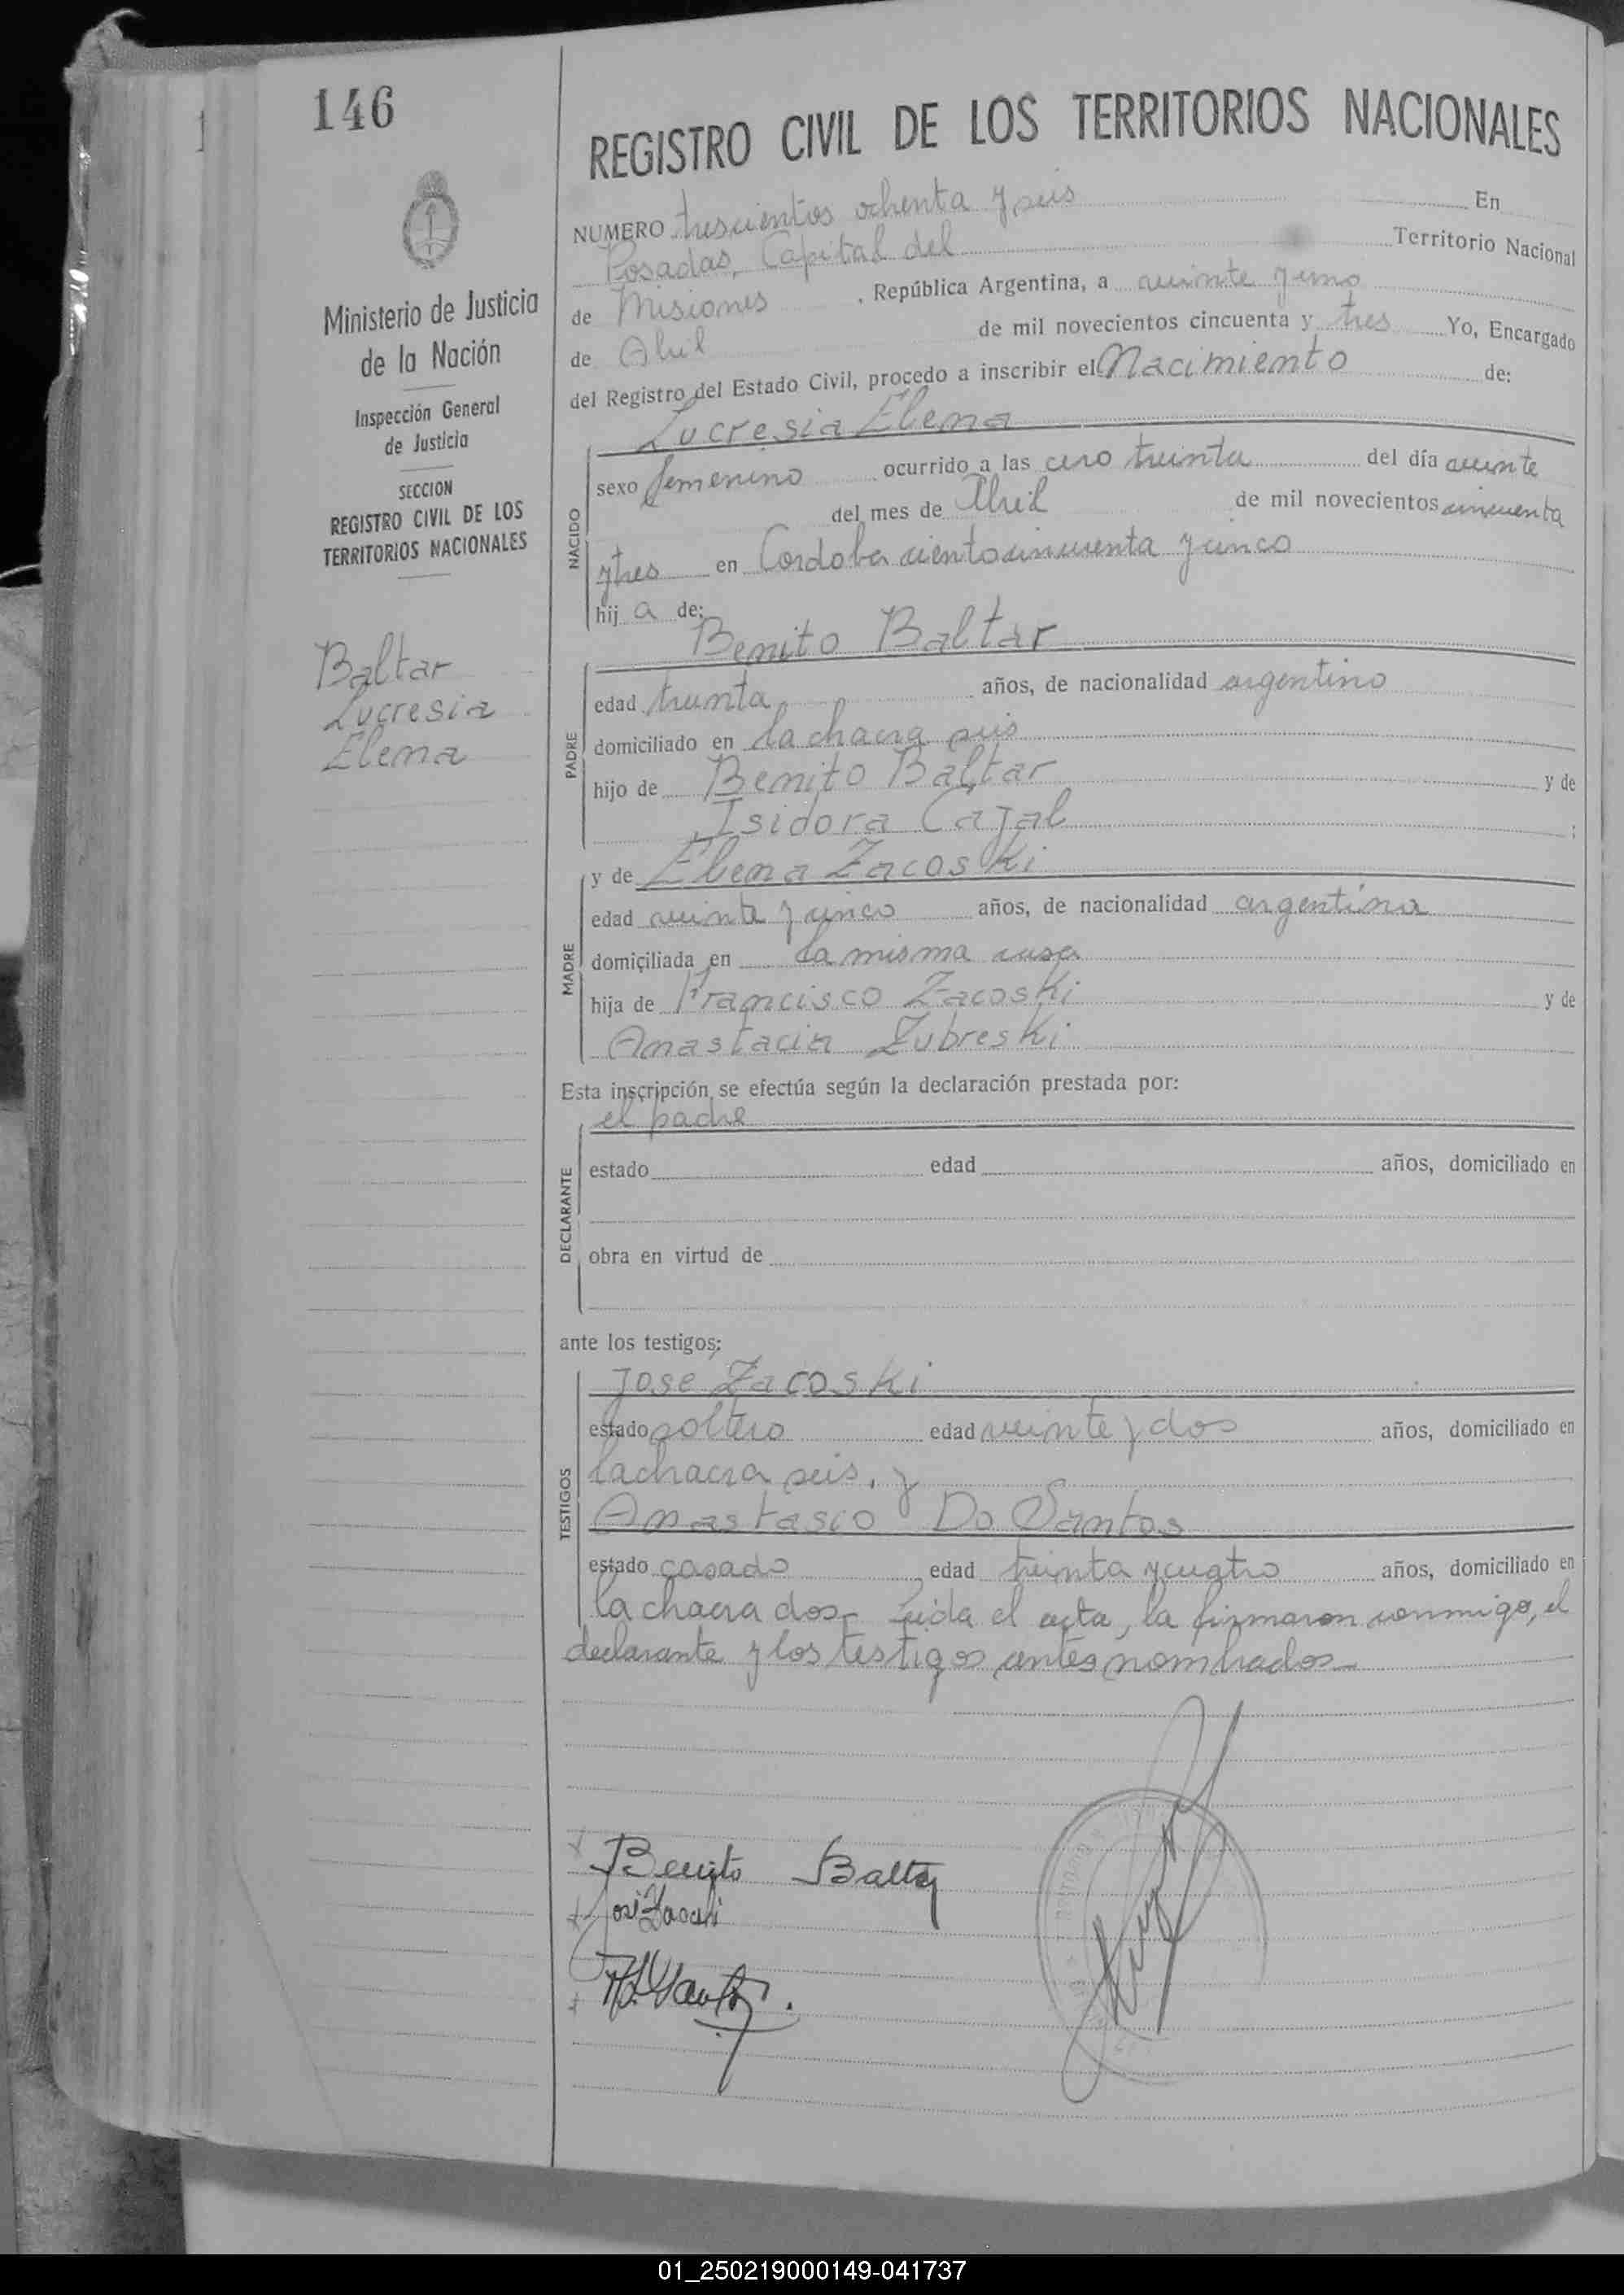 146
REGISTRO CIVIL DE LOS TERRITORIOS NACIONALES
Ministerio de Justicia
de la Nación
Inspección General
de Justicia
SECCION
REGISTRO CIVIL DE LOS
TERRITORIOS NACIONALES
Baltar
Lucresia
Elena
NUMERO trescientos ochenta y seis En
Posadas, Capital del Territorio Nacional
de Misiones, República Argentina, a veinte y uno
de Abril de mil novecientos cincuenta y tres Yo, Encargado
del Registro del Estado Civil, procedo a inscribir el Nacimiento de:
Lucresia Elena
NACIDO
sexo femenino ocurrido a las cero treinta del día veinte
del mes de Abril de mil novecientos cincuenta
y tres en Cordoba ciento cincuenta y cinco
hij a de:
Benito Baltar
PADRE
edad treinta años, de nacionalidad argentino
domiciliado en la chacra seis
hijo de Benito Baltar y de
Isidora Cazal ;
y de Elena Zacoski
MADRE
edad veinte y cinco años, de nacionalidad argentina
domiciliada en la misma casa
hija de Francisco Zacoski y de
Anastacia Zubreski
Esta inscripción se efectúa según la declaración prestada por:
el padre
DECLARANTE
estado edad años, domiciliado en
obra en virtud de
ante los testigos:
Jose Zacoski
TESTIGOS
estado soltero edad veinte y dos años, domiciliado en
la chacra seis, y
Anastasio Do Santos
estado casado edad treinta y cuatro años, domiciliado en
la chacra dos- Leida el acta, la firmaron conmigo, el
declarante y los testigos antes nombrados-
Benito Baltar
José Zacoski
01_250219000149-041737